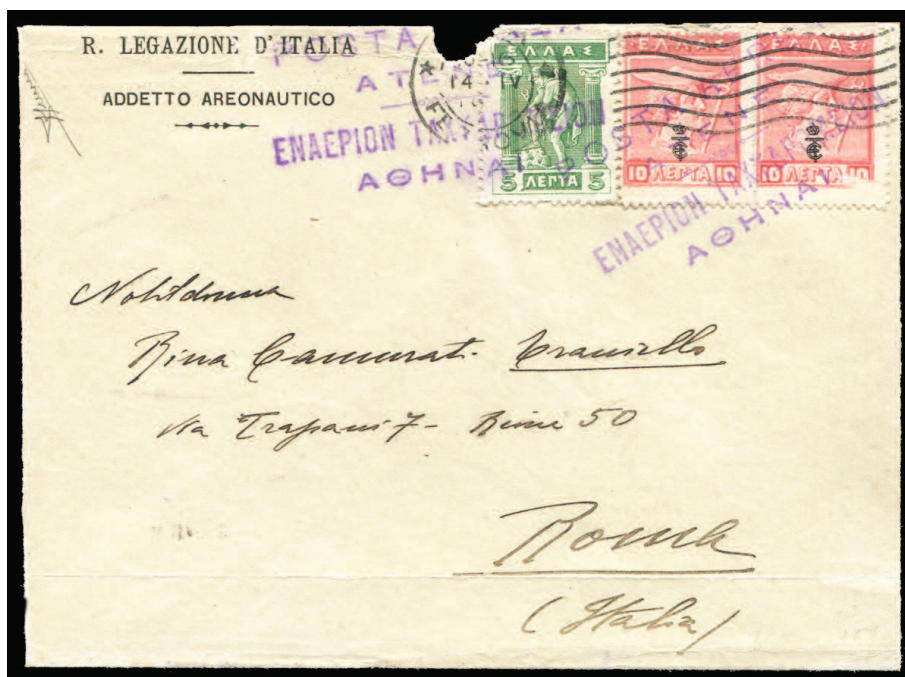 R. LEGAZIONE D'ITALIA
ADDETTO AREONAUTICO
POSTA
ΕΝΑΕΡΙΟΝ ΤΑΧΥΔΡΟΜΕΙΟΝ
ΑΘΗΝΑΙ
14 IV
ΕΛΛΑΣ
5 ΛΕΠΤΑ 5
ΕΛΛΑΣ
10 ΛΕΠΤΑ 10
ΕΛΛΑΣ
10 ΛΕΠΤΑ 10
POSTA
ΕΝΑΕΡΙΟΝ
ΑΘΗΝΑΙ
Nobildonna
Rina Camurati
Via Trapani 7 - 50
Roma
(Italia)